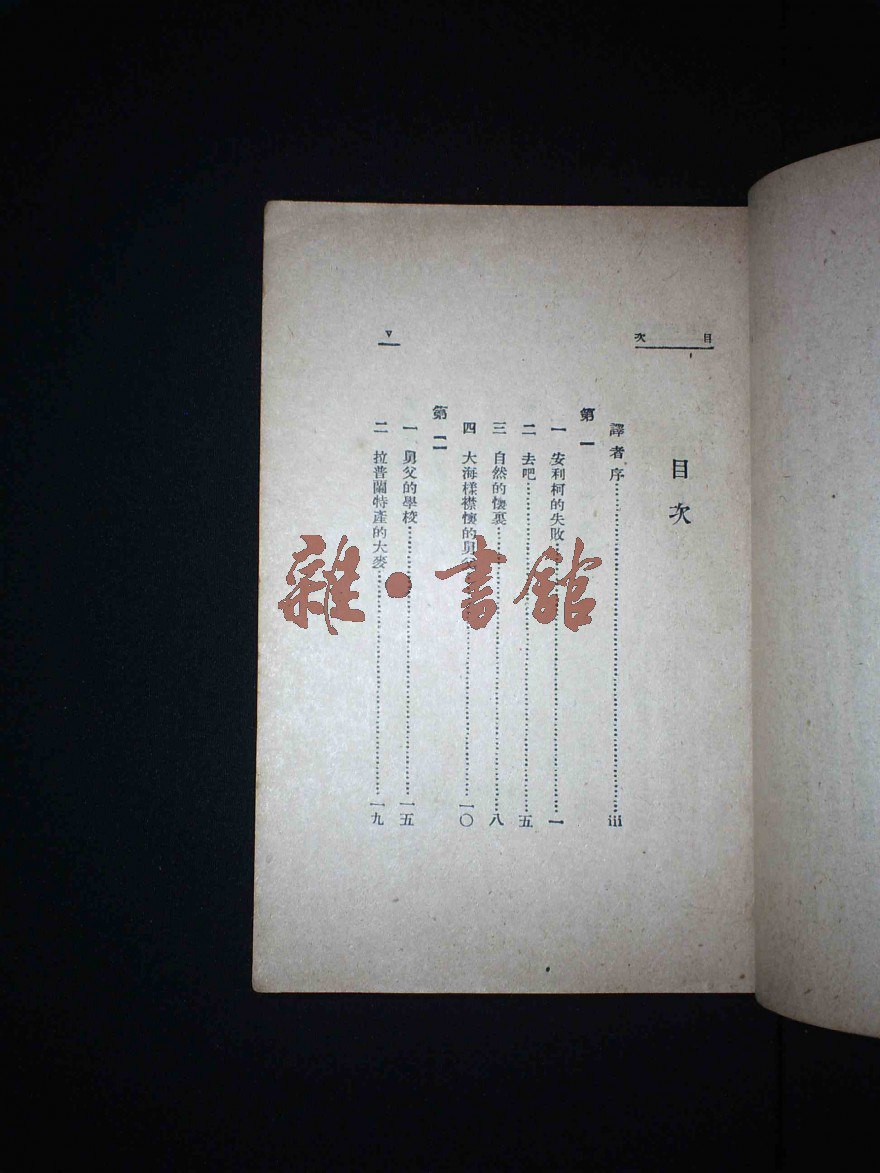 目次
v
目次
譯者序……iii
第一
一 安利柯的失敗……一
二 去吧……五
三 自然的懷裏……八
四 大海樣襟懷的舅父……一〇
第二
一 舅父的學校……一五
二 拉普蘭特產的大麥……一九
雜·書館